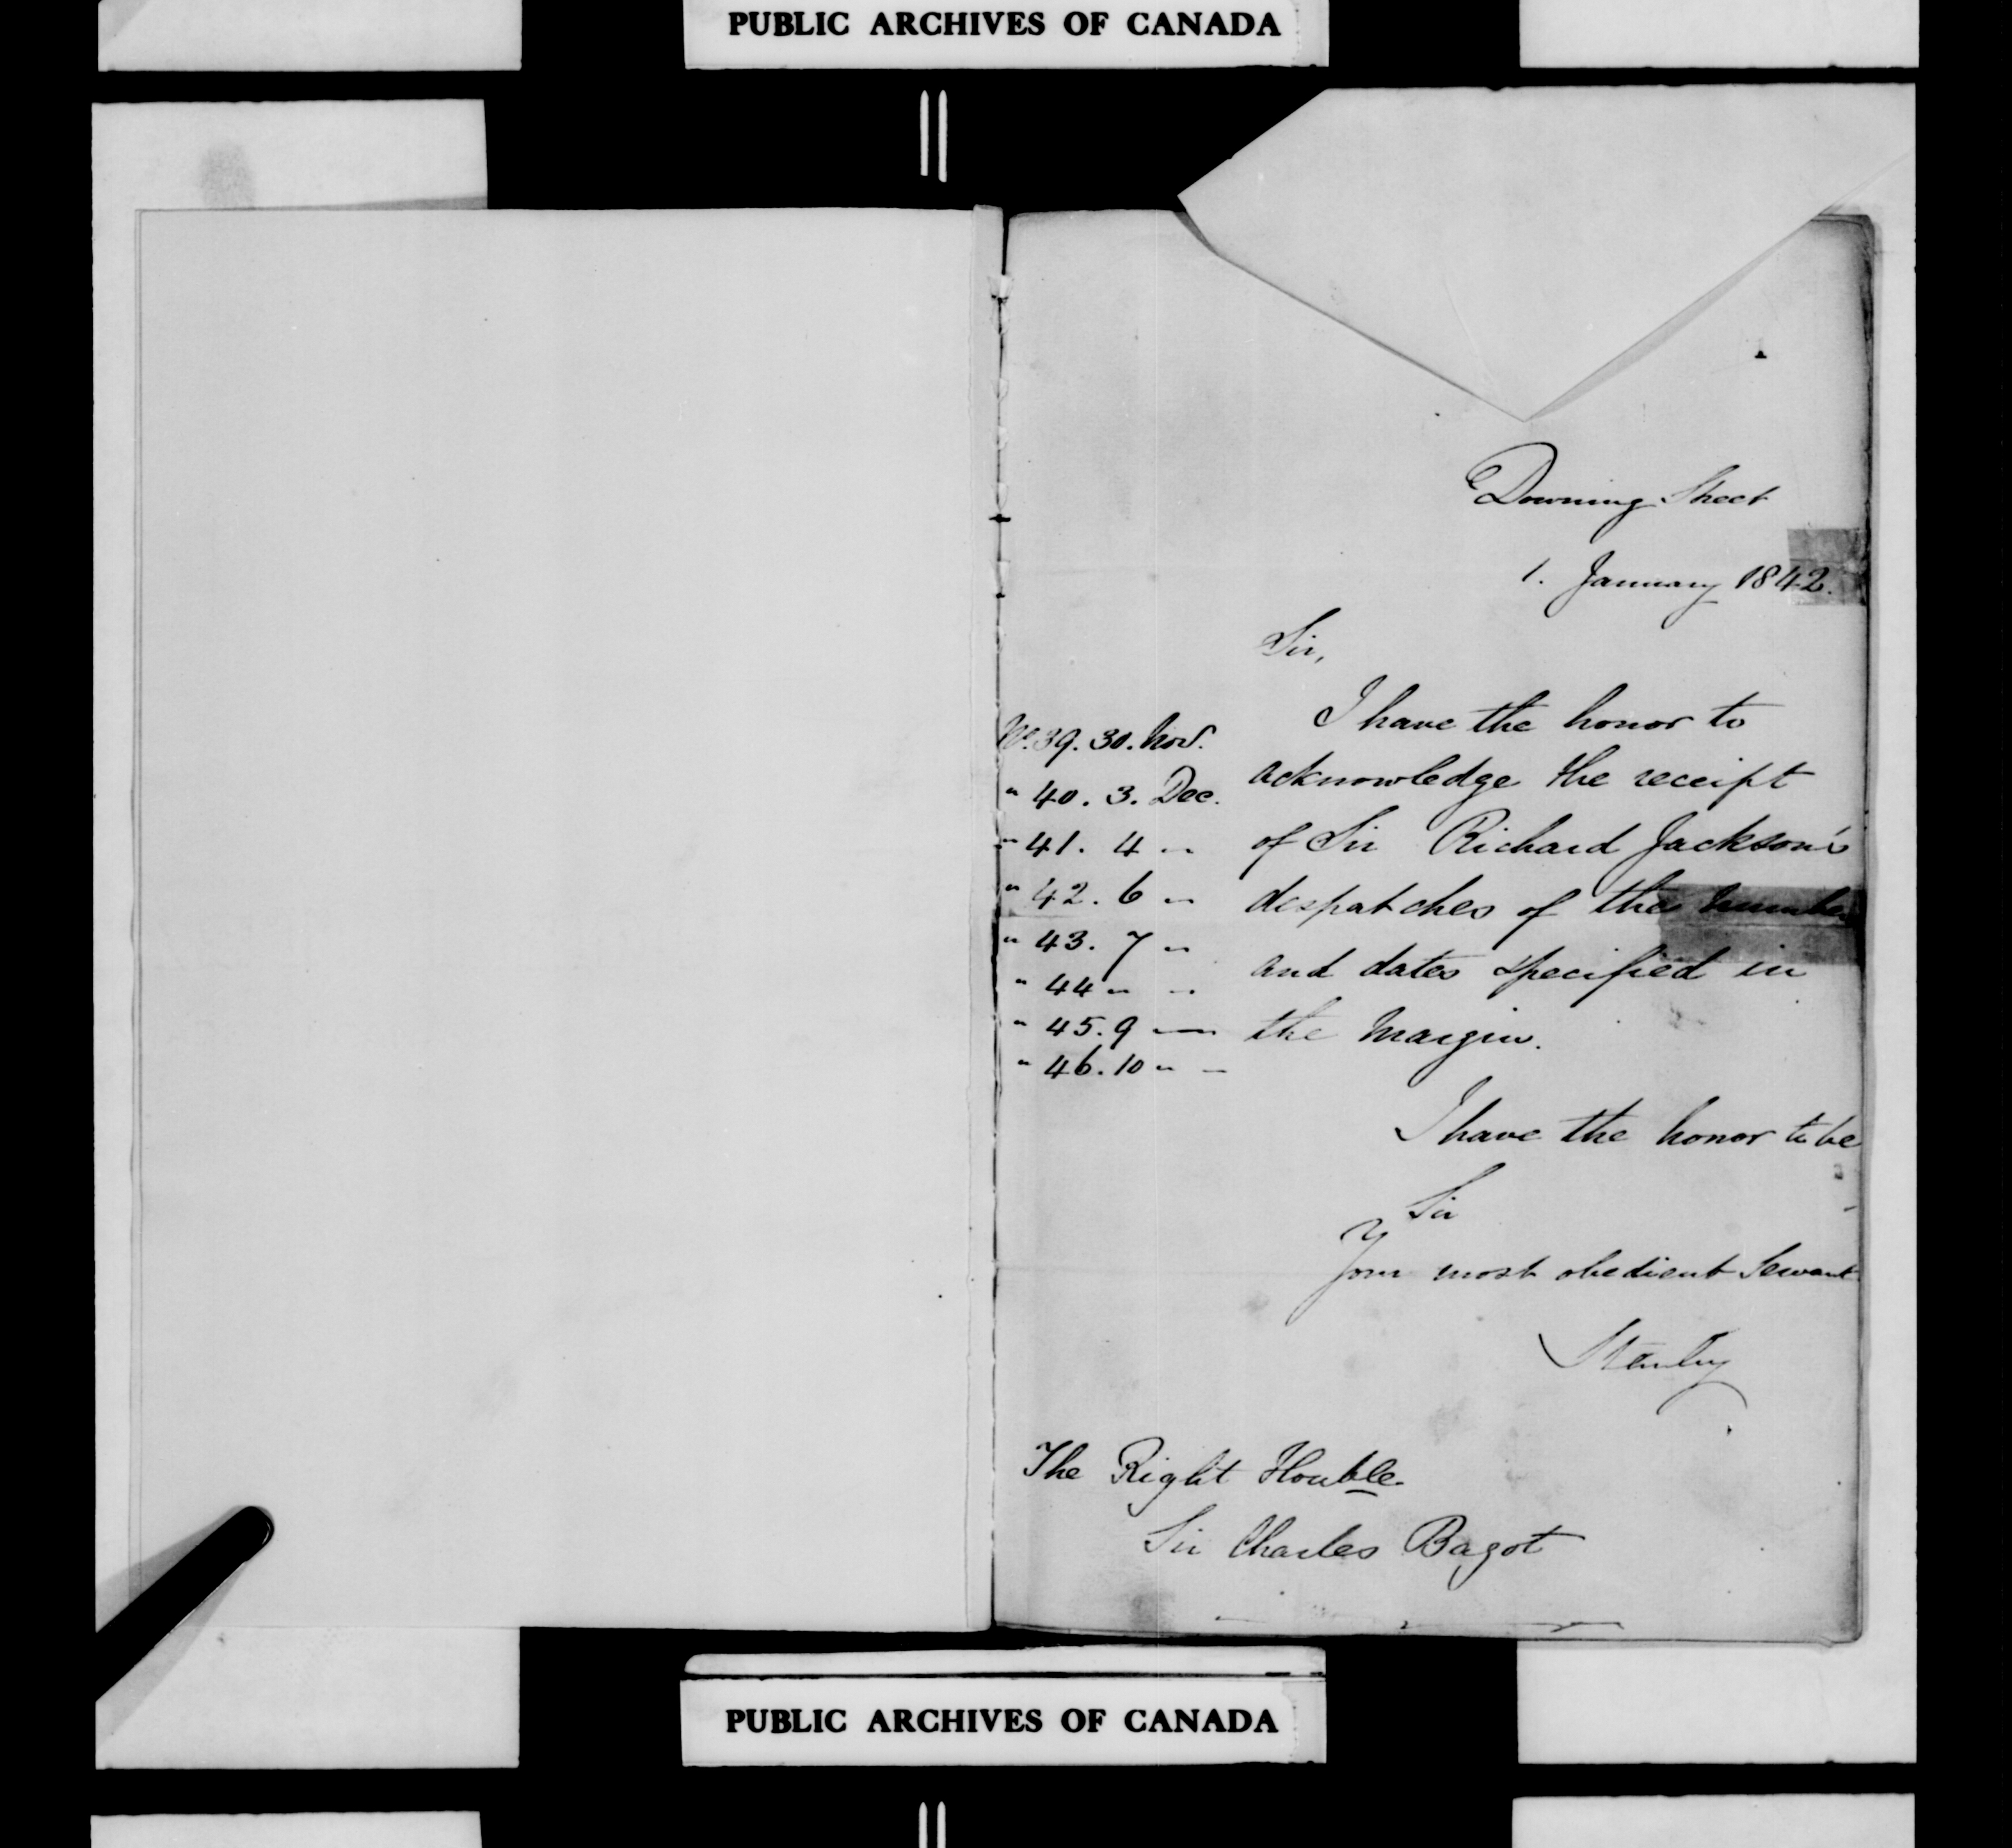 PUBLIC ARCHIVES OF CANADA
1
Downing Street
1. January 1842.
Sir,
I have the honor to
acknowledge the receipt
of Sir Richard Jackson's
despatches of the number
and dates specified in
the margin.
No. 39. 30. Nov.
" 40. 3. Dec.
" 41. 4 "
" 42. 6 "
" 43. 7 "
" 44 " "
" 45. 9 "
" 46. 10 " "
I have the honor to be
Sir
Your most obedient Servant
Stanley
The Right Honble.
Sir Charles Bagot
PUBLIC ARCHIVES OF CANADA